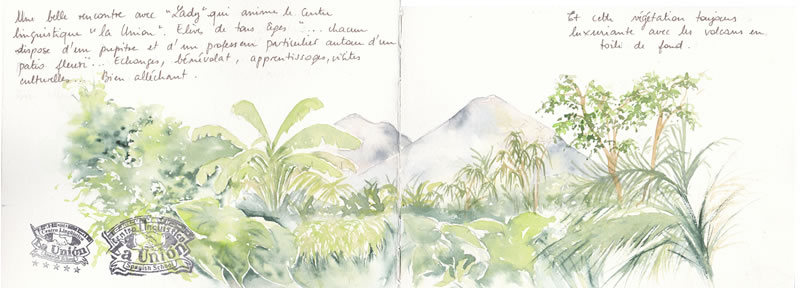 Une belle rencontre avec "Lady" qui anime le Centre
linguistique "la Union". Elèves de tous âges ..... chacun
dispose d'un pupitre et d'un professeur particulier autour d'un
patio fleuri... Echanges, bénévolat, apprentissages, visites
culturelles... Bien alléchant.
Et cette végétation toujours
luxuriante avec les volcans en
toile de fond.
Centro Lingüístico
La Unión
Centro Lingüístico
La Unión
Spanish School